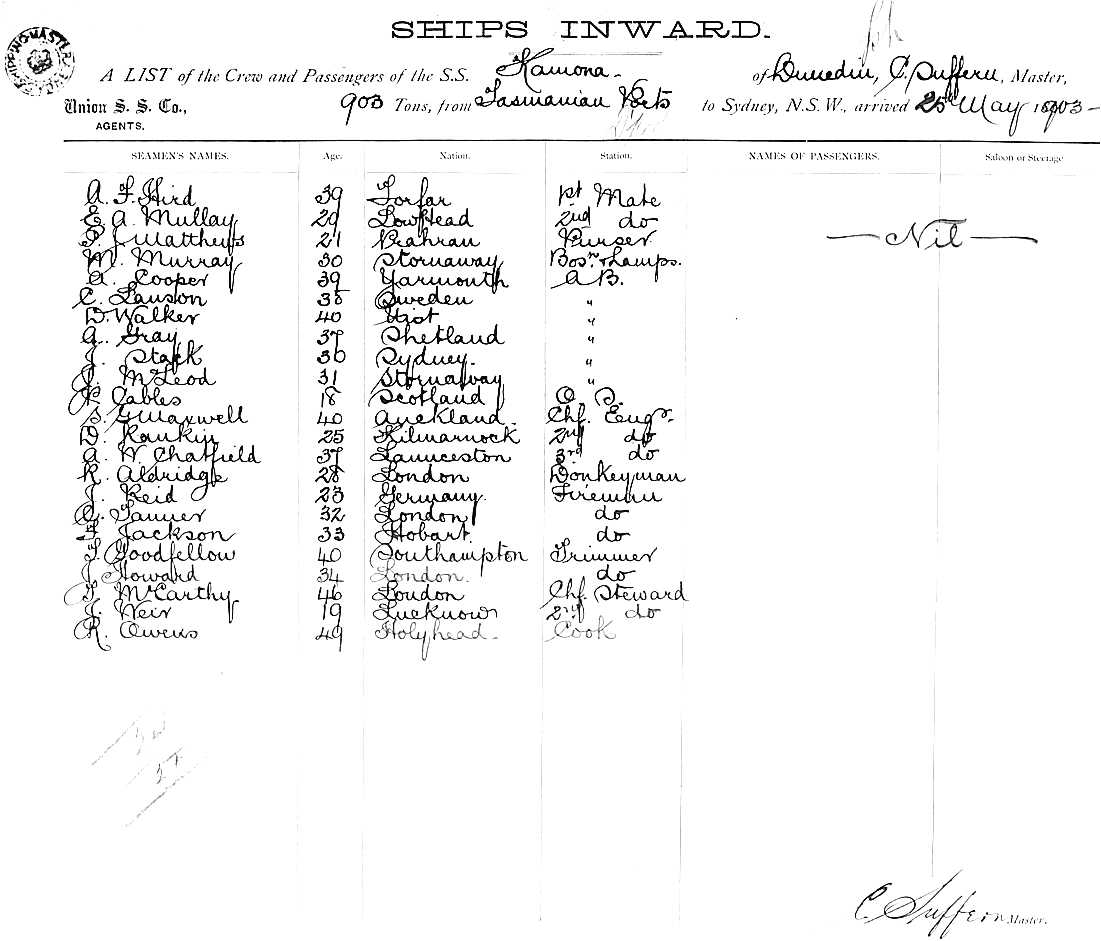 SHIPS INWARD.
A LIST of the Crew and Passengers of the S.S. Kamona of Dunedin, C. Suffern, Master,
Union S. S. Co., 903 Tons, from Tasmanian Ports to Sydney, N.S.W., arrived 25th May 1903
AGENTS.
SEAMEN'S NAMES. Age. Nation. Station. NAMES OF PASSENGERS. Saloon or Steerage
A. F. Hird 39 Forfar 1st Mate
E. A. Mullay 29 Low Head 2nd do
P. J. Matthews 21 Prahran Purser — Nil —
M. Murray 30 Stornaway Bosn & Lamps.
A. Cooper 39 Yarmouth A B.
C. Lauson 38 Sweden "
D. Walker 40 Uist "
A. Gray 37 Shetland "
J. Stack 30 Sydney. "
J. McLeod 31 Stornaway "
P. Cables 18 Scotland O. S.
S. G Maxwell 40 Auckland. Chf. Engr.
D. Rankin 25 Kilmarnock 2nd do
A. W. Chatfield 37 Launceston 3rd do
R. Aldridge 28 London Donkeyman
J. Reid 23 Germany. Firemen
Tanner 32 London do
F. Jackson 33 Hobart. do
T. Goodfellow 40 Southampton Trimmer
J. Howard 34 London. do
T. McCarthy 46 London Chf. Steward
J. Weir 19 Lucknow 2nd do
R. Owens 49 Holyhead. Cook
C. Suffern Master.